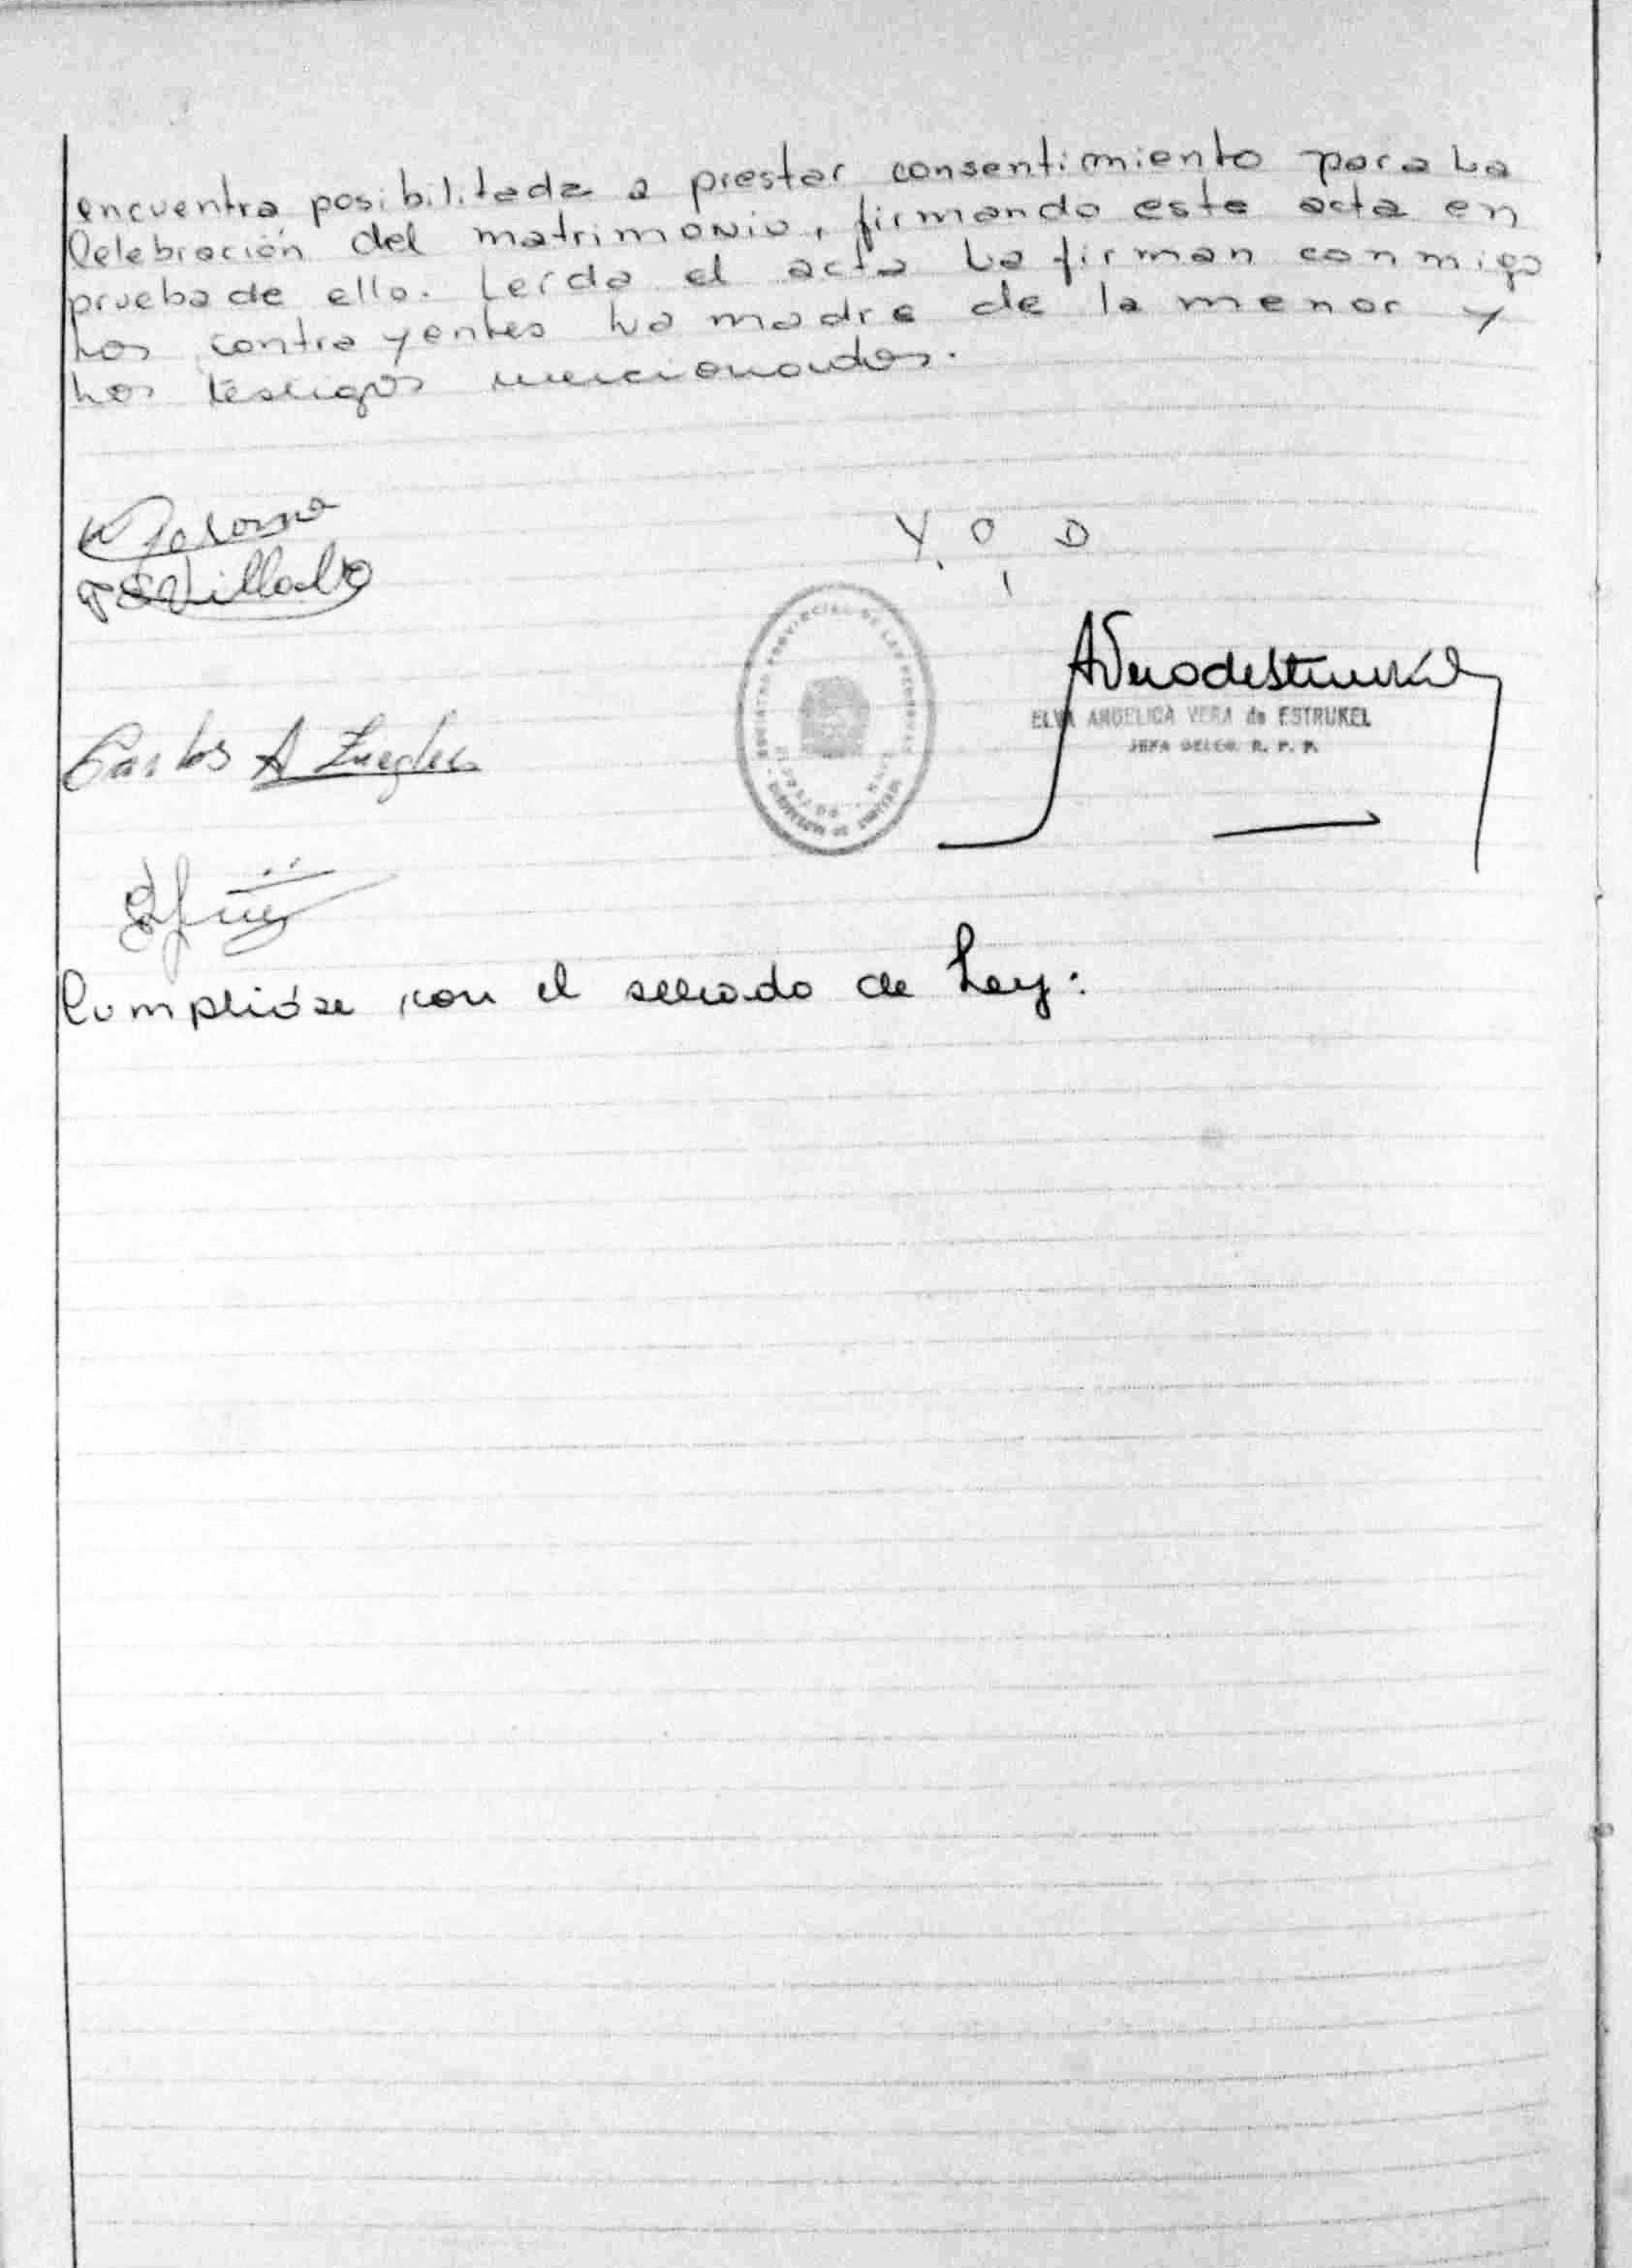 encuentra posibilitada a prestar consentimiento para La
Celebración del matrimonio, firmando este acta en
prueba de ello. Leída el acta La firman conmigo
Los contrayentes La madre de la menor y
Los testigos mencionados.
Villalba
Y O D
Carlos A
ELVA ANGELICA VERA de ESTRUKEL
JEFA DELEG. R. P. P.
PROVINCIAL DE LAS PERSONAS
Cumplióse con el sellado de Ley: